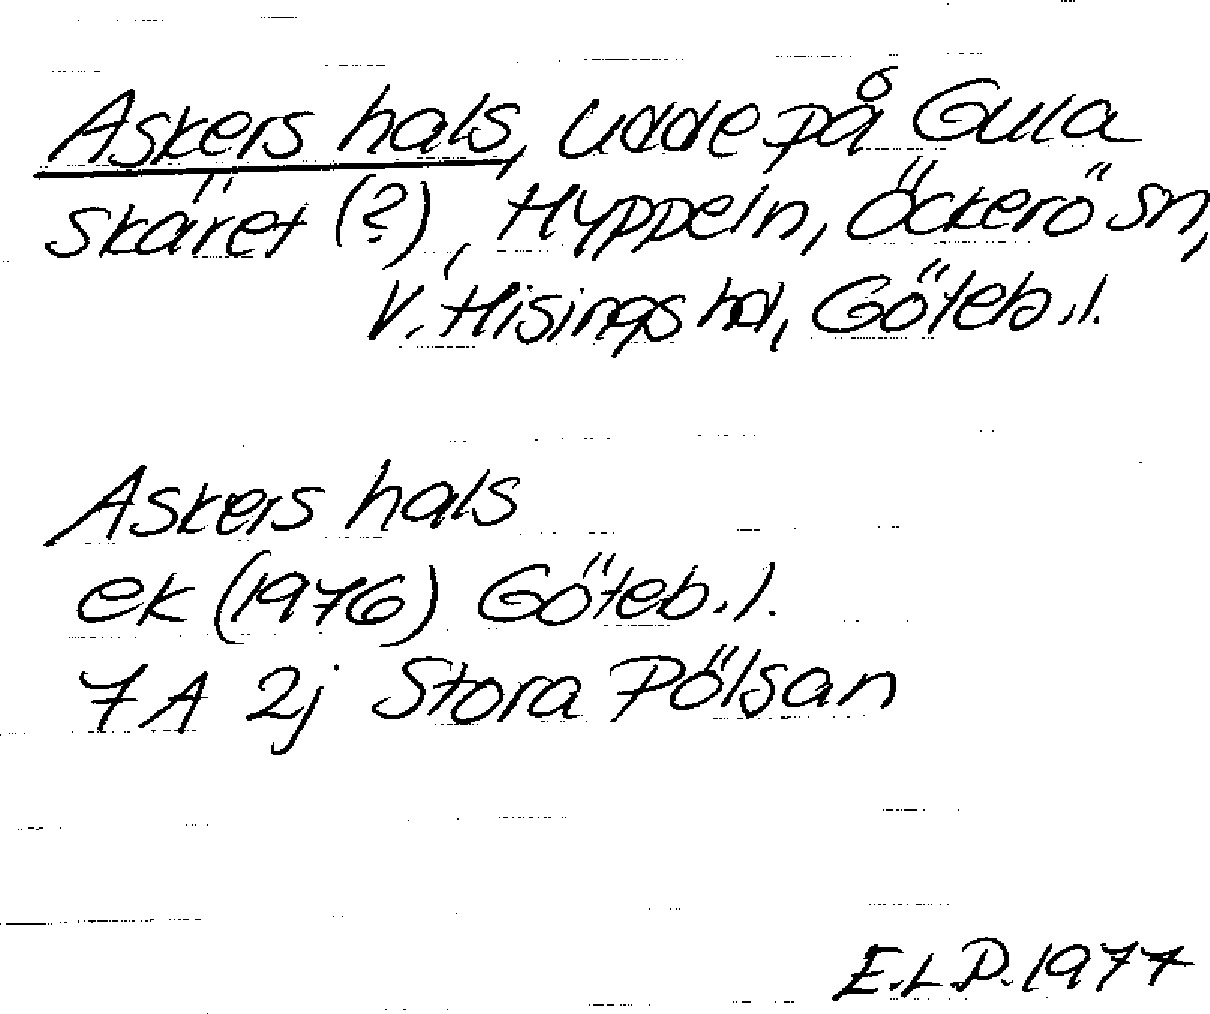 Askers hals, udde på Gula
skäret (?), Hyppeln, Öckerö sn,
V. Hisings hd, Göteb. l.
Askers hals
ek (1976) Göteb. l.
7 A 2j Stora Pölsan
E.L.P. 1977